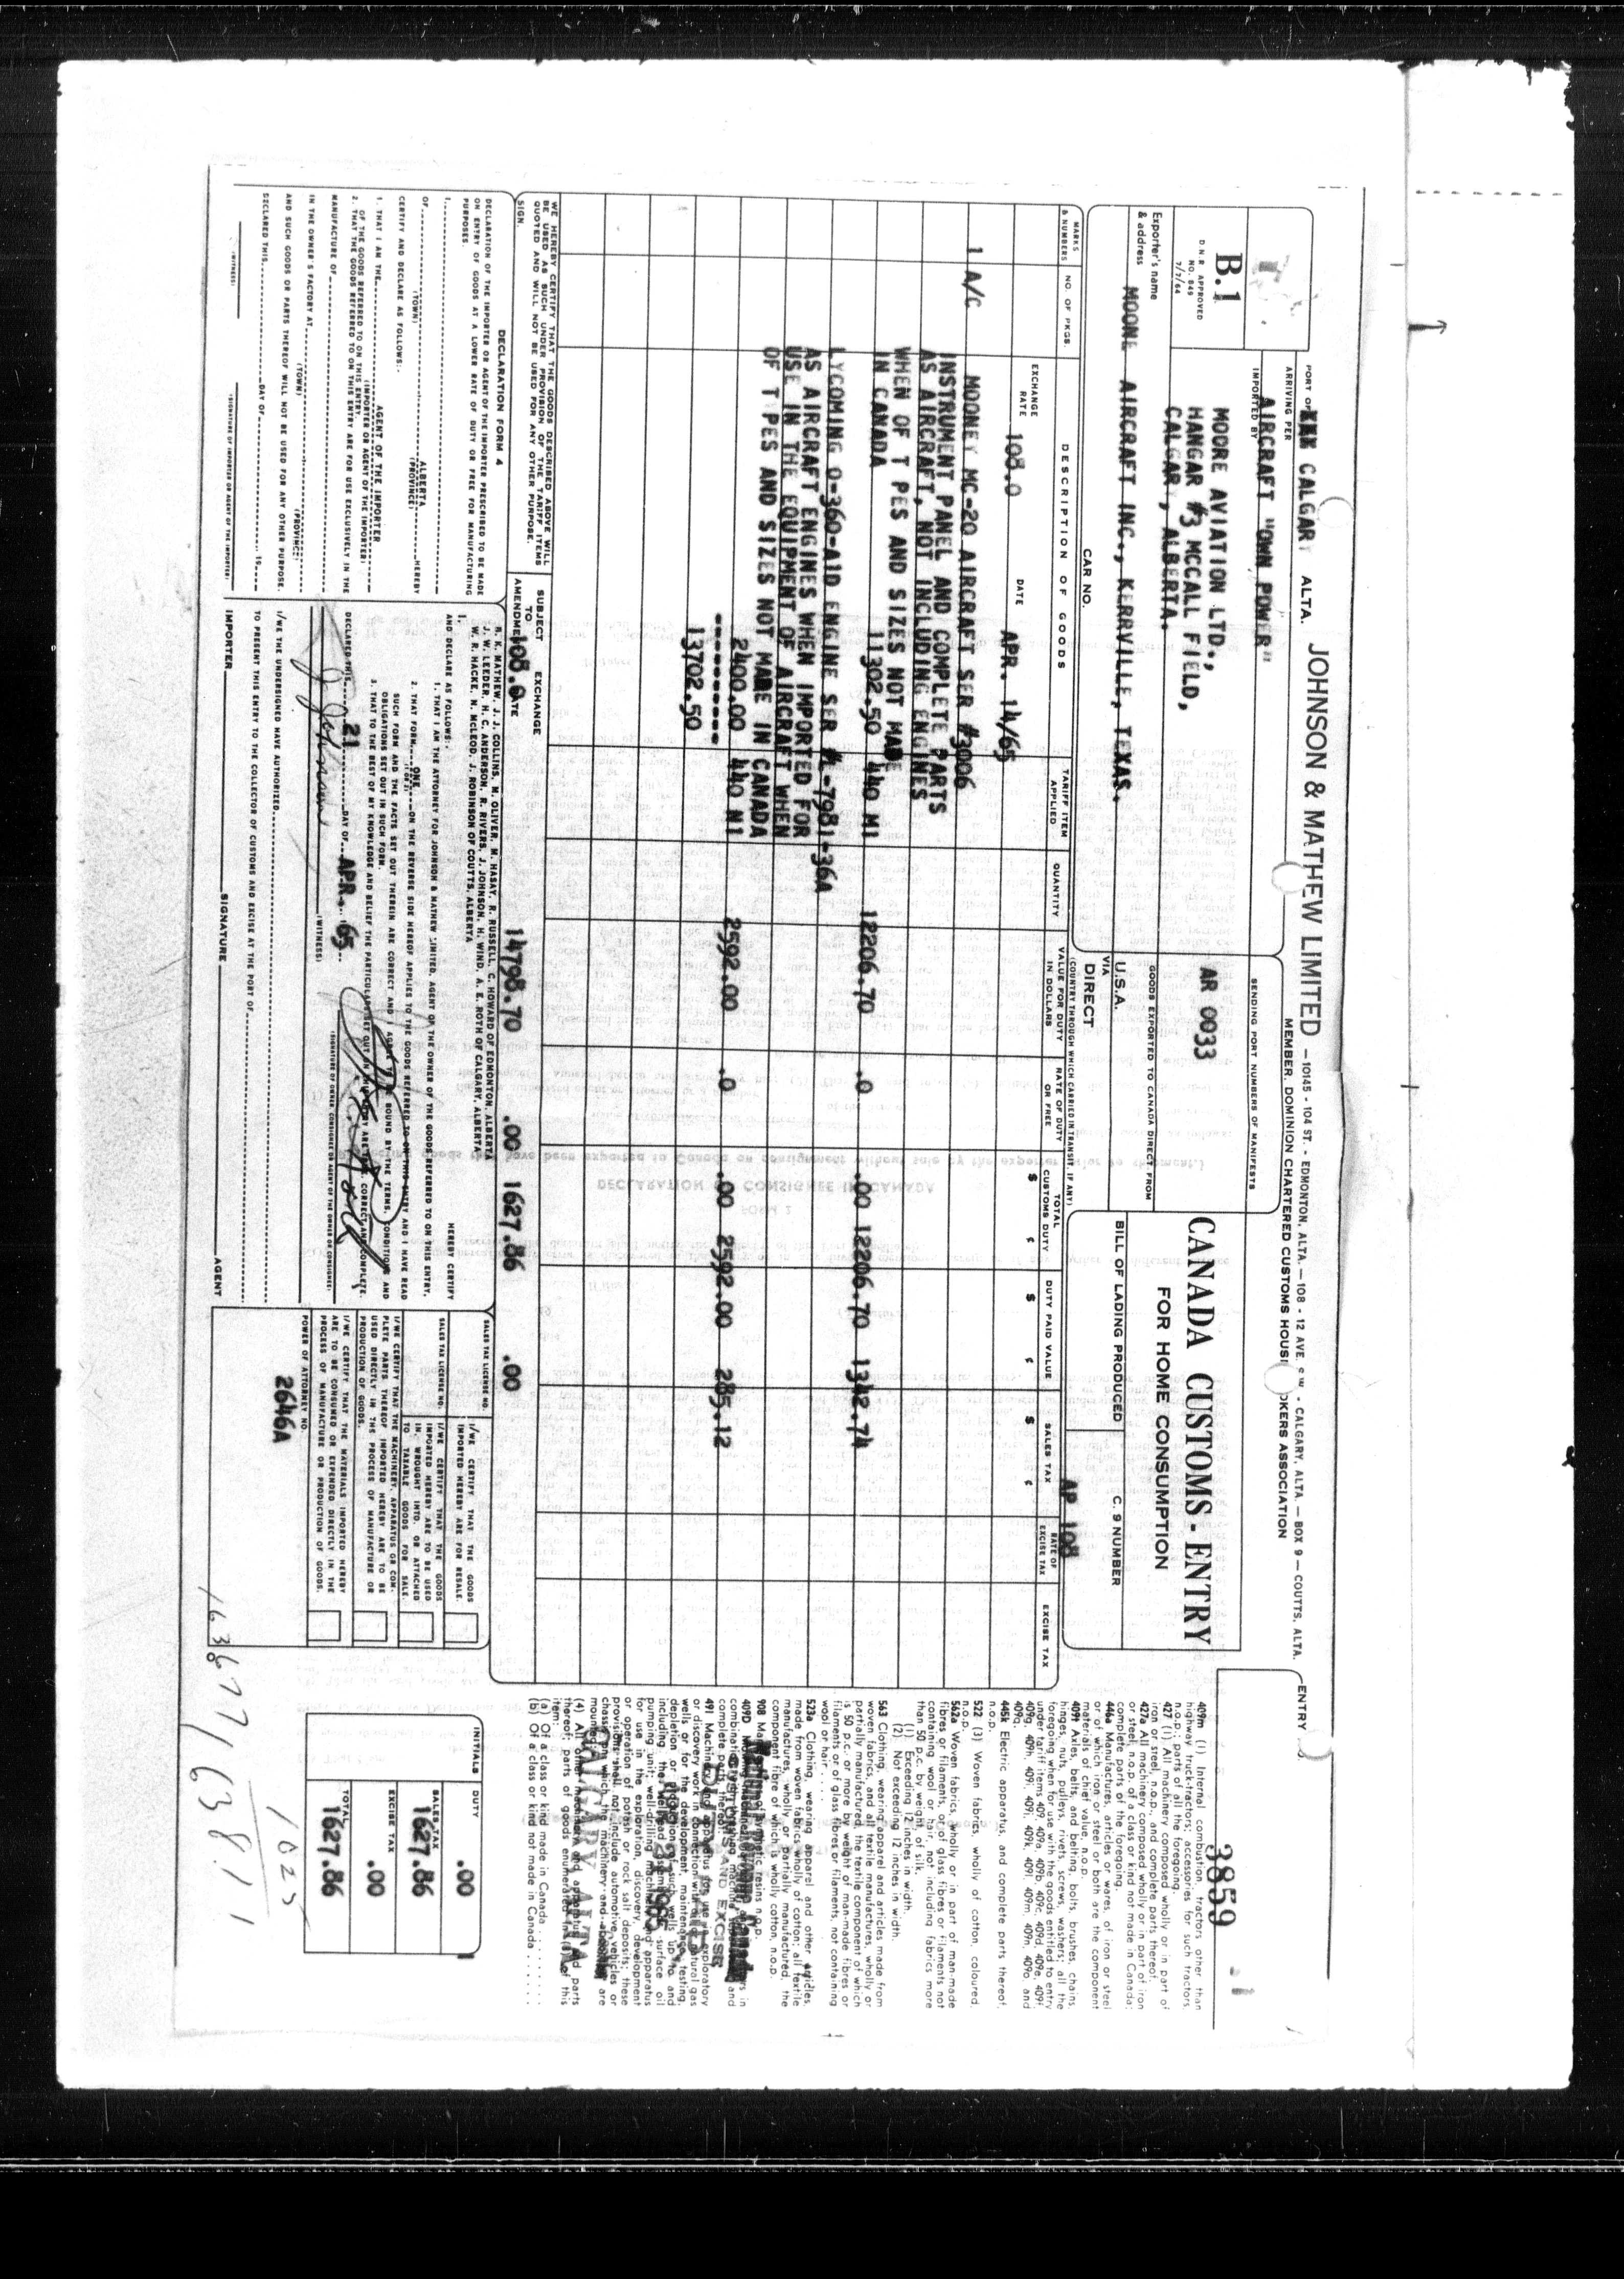 PORT OF XXX CALGARY ALTA. JOHNSON & MATHEW LIMITED — 10145 - 104 ST. - EDMONTON, ALTA. — 108 - 12 AVE. S.W. - CALGARY, ALTA. — BOX 9 — COUTTS, ALTA.
MEMBER, DOMINION CHARTERED CUSTOMS HOUSE BROKERS ASSOCIATION
ENTRY
3859
ARRIVING PER
AIRCRAFT "OWN POWER"
B.1
D.N.R. APPROVED
NO. 849
7/7/64
IMPORTED BY
MOORE AVIATION LTD.,
HANGAR #3 MCCALL FIELD,
CALGARY, ALBERTA.
SENDING PORT NUMBERS OF MANIFESTS
AR 0033
CANADA CUSTOMS - ENTRY
FOR HOME CONSUMPTION
Exporter's name
& address
MOONEY AIRCRAFT INC., KERRVILLE, TEXAS.
GOODS EXPORTED TO CANADA DIRECT FROM
U.S.A.
VIA
DIRECT
(COUNTRY THROUGH WHICH CARRIED IN TRANSIT, IF ANY)
CAR NO.
BILL OF LADING PRODUCED
C. 9 NUMBER
AP 108
MARKS & NUMBERS NO. OF PKGS. DESCRIPTION OF GOODS TARIFF ITEM APPLIED QUANTITY VALUE FOR DUTY IN DOLLARS RATE OF DUTY OR FREE TOTAL CUSTOMS DUTY DUTY PAID VALUE SALES TAX RATE OF EXCISE TAX EXCISE TAX
$ ¢ $ ¢ $ ¢
EXCHANGE RATE 108.0 DATE APR. 14/65
1 A/C MOONEY MC-20 AIRCRAFT SER #3006
INSTRUMENT PANEL AND COMPLETE PARTS
AS AIRCRAFT, NOT INCLUDING ENGINES
WHEN OF TYPES AND SIZES NOT MADE
IN CANADA 11302.50 440 M1 12206.70 .0 .00 12206.70 1342.74
LYCOMING O-360-A1D ENGINE SER #L-7981-36A
AS AIRCRAFT ENGINES WHEN IMPORTED FOR
USE IN THE EQUIPMENT OF AIRCRAFT WHEN
OF TYPES AND SIZES NOT MADE IN CANADA
2400.00 440 N1 2592.00 .0 .00 2592.00 285.12
--------
13702.50
WE HEREBY CERTIFY THAT THE GOODS DESCRIBED ABOVE WILL
BE USED AS SUCH UNDER PROVISION OF THE TARIFF ITEMS
QUOTED AND WILL NOT BE USED FOR ANY OTHER PURPOSE.
SIGN.
SUBJECT TO AMENDMENT EXCHANGE RATE 108.0 14798.70 .00 1627.86 .00
DECLARATION FORM 4
DECLARATION OF THE IMPORTER OR AGENT OF THE IMPORTER PRESCRIBED TO BE MADE
ON ENTRY OF GOODS AT A LOWER RATE OF DUTY OR FREE FOR MANUFACTURING
PURPOSES.
I,
OF ALBERTA HEREBY
(TOWN) (PROVINCE)
CERTIFY AND DECLARE AS FOLLOWS:-
1. THAT I AM THE AGENT OF THE IMPORTER
(IMPORTER OR AGENT OF THE IMPORTER)
OF THE GOODS REFERRED TO ON THIS ENTRY.
2. THAT THE GOODS REFERRED TO ON THIS ENTRY ARE FOR USE EXCLUSIVELY IN THE
MANUFACTURE OF
IN THE OWNER'S FACTORY AT
(TOWN) (PROVINCE)
AND SUCH GOODS OR PARTS THEREOF WILL NOT BE USED FOR ANY OTHER PURPOSE.
DECLARED THIS DAY OF 19
(WITNESS) (SIGNATURE OF IMPORTER OR AGENT OF THE IMPORTER)
R. K. MATHEW, J. J. COLLINS, M. OLIVER, M. HASAY, R. RUSSELL, C. HOWARD OF EDMONTON, ALBERTA
J. W. LEEDER, H. C. ANDERSON, R. RIVERS, J. JOHNSON, H. WIND, A. E. ROTH OF CALGARY, ALBERTA
W. R. HACKE, N. McLEOD, J. ROBINSON OF COUTTS, ALBERTA
I, HEREBY CERTIFY
AND DECLARE AS FOLLOWS:-
1. THAT I AM THE ATTORNEY FOR JOHNSON & MATHEW LIMITED, AGENT OF THE OWNER OF THE GOODS REFERRED TO ON THIS ENTRY.
2. THAT FORM ONE ON THE REVERSE SIDE HEREOF APPLIES TO THE GOODS REFERRED TO ON THIS ENTRY AND I HAVE READ
SUCH FORM AND THE FACTS SET OUT THEREIN ARE CORRECT AND I AGREE TO BE BOUND BY THE TERMS, CONDITIONS AND
OBLIGATIONS SET OUT IN SUCH FORM.
3. THAT TO THE BEST OF MY KNOWLEDGE AND BELIEF THE PARTICULARS SET OUT IN THIS ENTRY ARE TRUE, CORRECT AND COMPLETE.
DECLARED THIS 21 DAY OF APR. 65
(WITNESS) (SIGNATURE OF OWNER, CONSIGNEE OR AGENT OF THE OWNER OR CONSIGNEE)
I/WE THE UNDERSIGNED HAVE AUTHORIZED
TO PRESENT THIS ENTRY TO THE COLLECTOR OF CUSTOMS AND EXCISE AT THE PORT OF
IMPORTER SIGNATURE AGENT
SALES TAX LICENSE NO.
I/WE CERTIFY THAT THE GOODS
IMPORTED HEREBY ARE FOR RESALE.
SALES TAX LICENSE NO.
I/WE CERTIFY THAT THE GOODS
IMPORTED HEREBY ARE TO BE USED
IN, WROUGHT INTO, OR ATTACHED
TO TAXABLE GOODS FOR SALE.
I/WE CERTIFY THAT THE MACHINERY, APPARATUS OR COM-
PLETE PARTS THEREOF IMPORTED HEREBY ARE TO BE
USED DIRECTLY IN THE PROCESS OF MANUFACTURE OR
PRODUCTION OF GOODS.
I/WE CERTIFY THAT THE MATERIALS IMPORTED HEREBY
ARE TO BE CONSUMED OR EXPENDED DIRECTLY IN THE
PROCESS OF MANUFACTURE OR PRODUCTION OF GOODS.
POWER OF ATTORNEY NO.
2646A
409m (1) Internal combustion, tractors other than
highway truck-tractors; accessories for such tractors,
n.o.p.; parts of all the foregoing.
427 (1) All machinery composed wholly or in part of
iron or steel, n.o.p., and complete parts thereof.
427a All machinery composed wholly or in part of iron
or steel, n.o.p. of a class or kind not made in Canada;
complete parts of the foregoing.
446a Manufactures, articles or wares, of iron or steel
or of which iron or steel or both are the component
materials of chief value, n.o.p.
409f Axles, belts, and belting, bolts, brushes, chains,
hinges, nuts, pulleys, rivets, screws, washers; all the
foregoing when for use with the goods entitled to entry
under tariff items 409, 409a, 409b, 409c, 409d, 409e, 409f,
409g, 409h, 409i, 409j, 409k, 409l, 409m, 409n, 409o, and
409q.
445k Electric apparatus, and complete parts thereof,
n.o.p.
522 (3) Woven fabrics, wholly of cotton, coloured,
n.o.p.
562a Woven fabrics, wholly or in part of man-made
fibres or filaments, or of glass fibres or filaments, not
containing wool or hair, not including fabrics more
than 50 p.c. by weight, of silk.
(1) Exceeding 12 inches in width.
(2) Not exceeding 12 inches in width.
563 Clothing, wearing apparel and articles made from
woven fabrics, and all textile manufactures, wholly or
partially manufactured, the textile component of which
is 50 p.c. or more by weight of man-made fibres or
filaments or of glass fibres or filaments, not containing
wool or hair, . . .
523a Clothing, wearing apparel and other articles,
made from woven fabrics wholly of cotton; all textile
manufactures, wholly or partially manufactured, the
component fibre of which is wholly cotton, n.o.p.
908 synthetic resins n.o.p.
409D
complete parts thereof.
491 Machinery and apparatus for use in exploratory
or discovery work in connection with natural gas
wells or for the development, maintenance, testing,
depletion or production of such wells up to and
including the wellhead assembly surface oil
pumping unit; well-drilling machinery and apparatus
for use in the exploration, discovery, development
or operation of potash or rock salt deposits; these
provisions shall not include automotive vehicles or
chassis on which the machinery and apparatus are
mounted.
(4) All other machinery and apparatus and parts
thereof; parts of goods enumerated in (3) of this
item:
(a) Of a class or kind made in Canada . . . . . .
(b) Of a class or kind not made in Canada . . . . .
CUSTOMS AND EXCISE
CALGARY ALTA
INITIALS
DUTY .00
SALES TAX 1627.86
EXCISE TAX .00
TOTAL 1627.86
1025